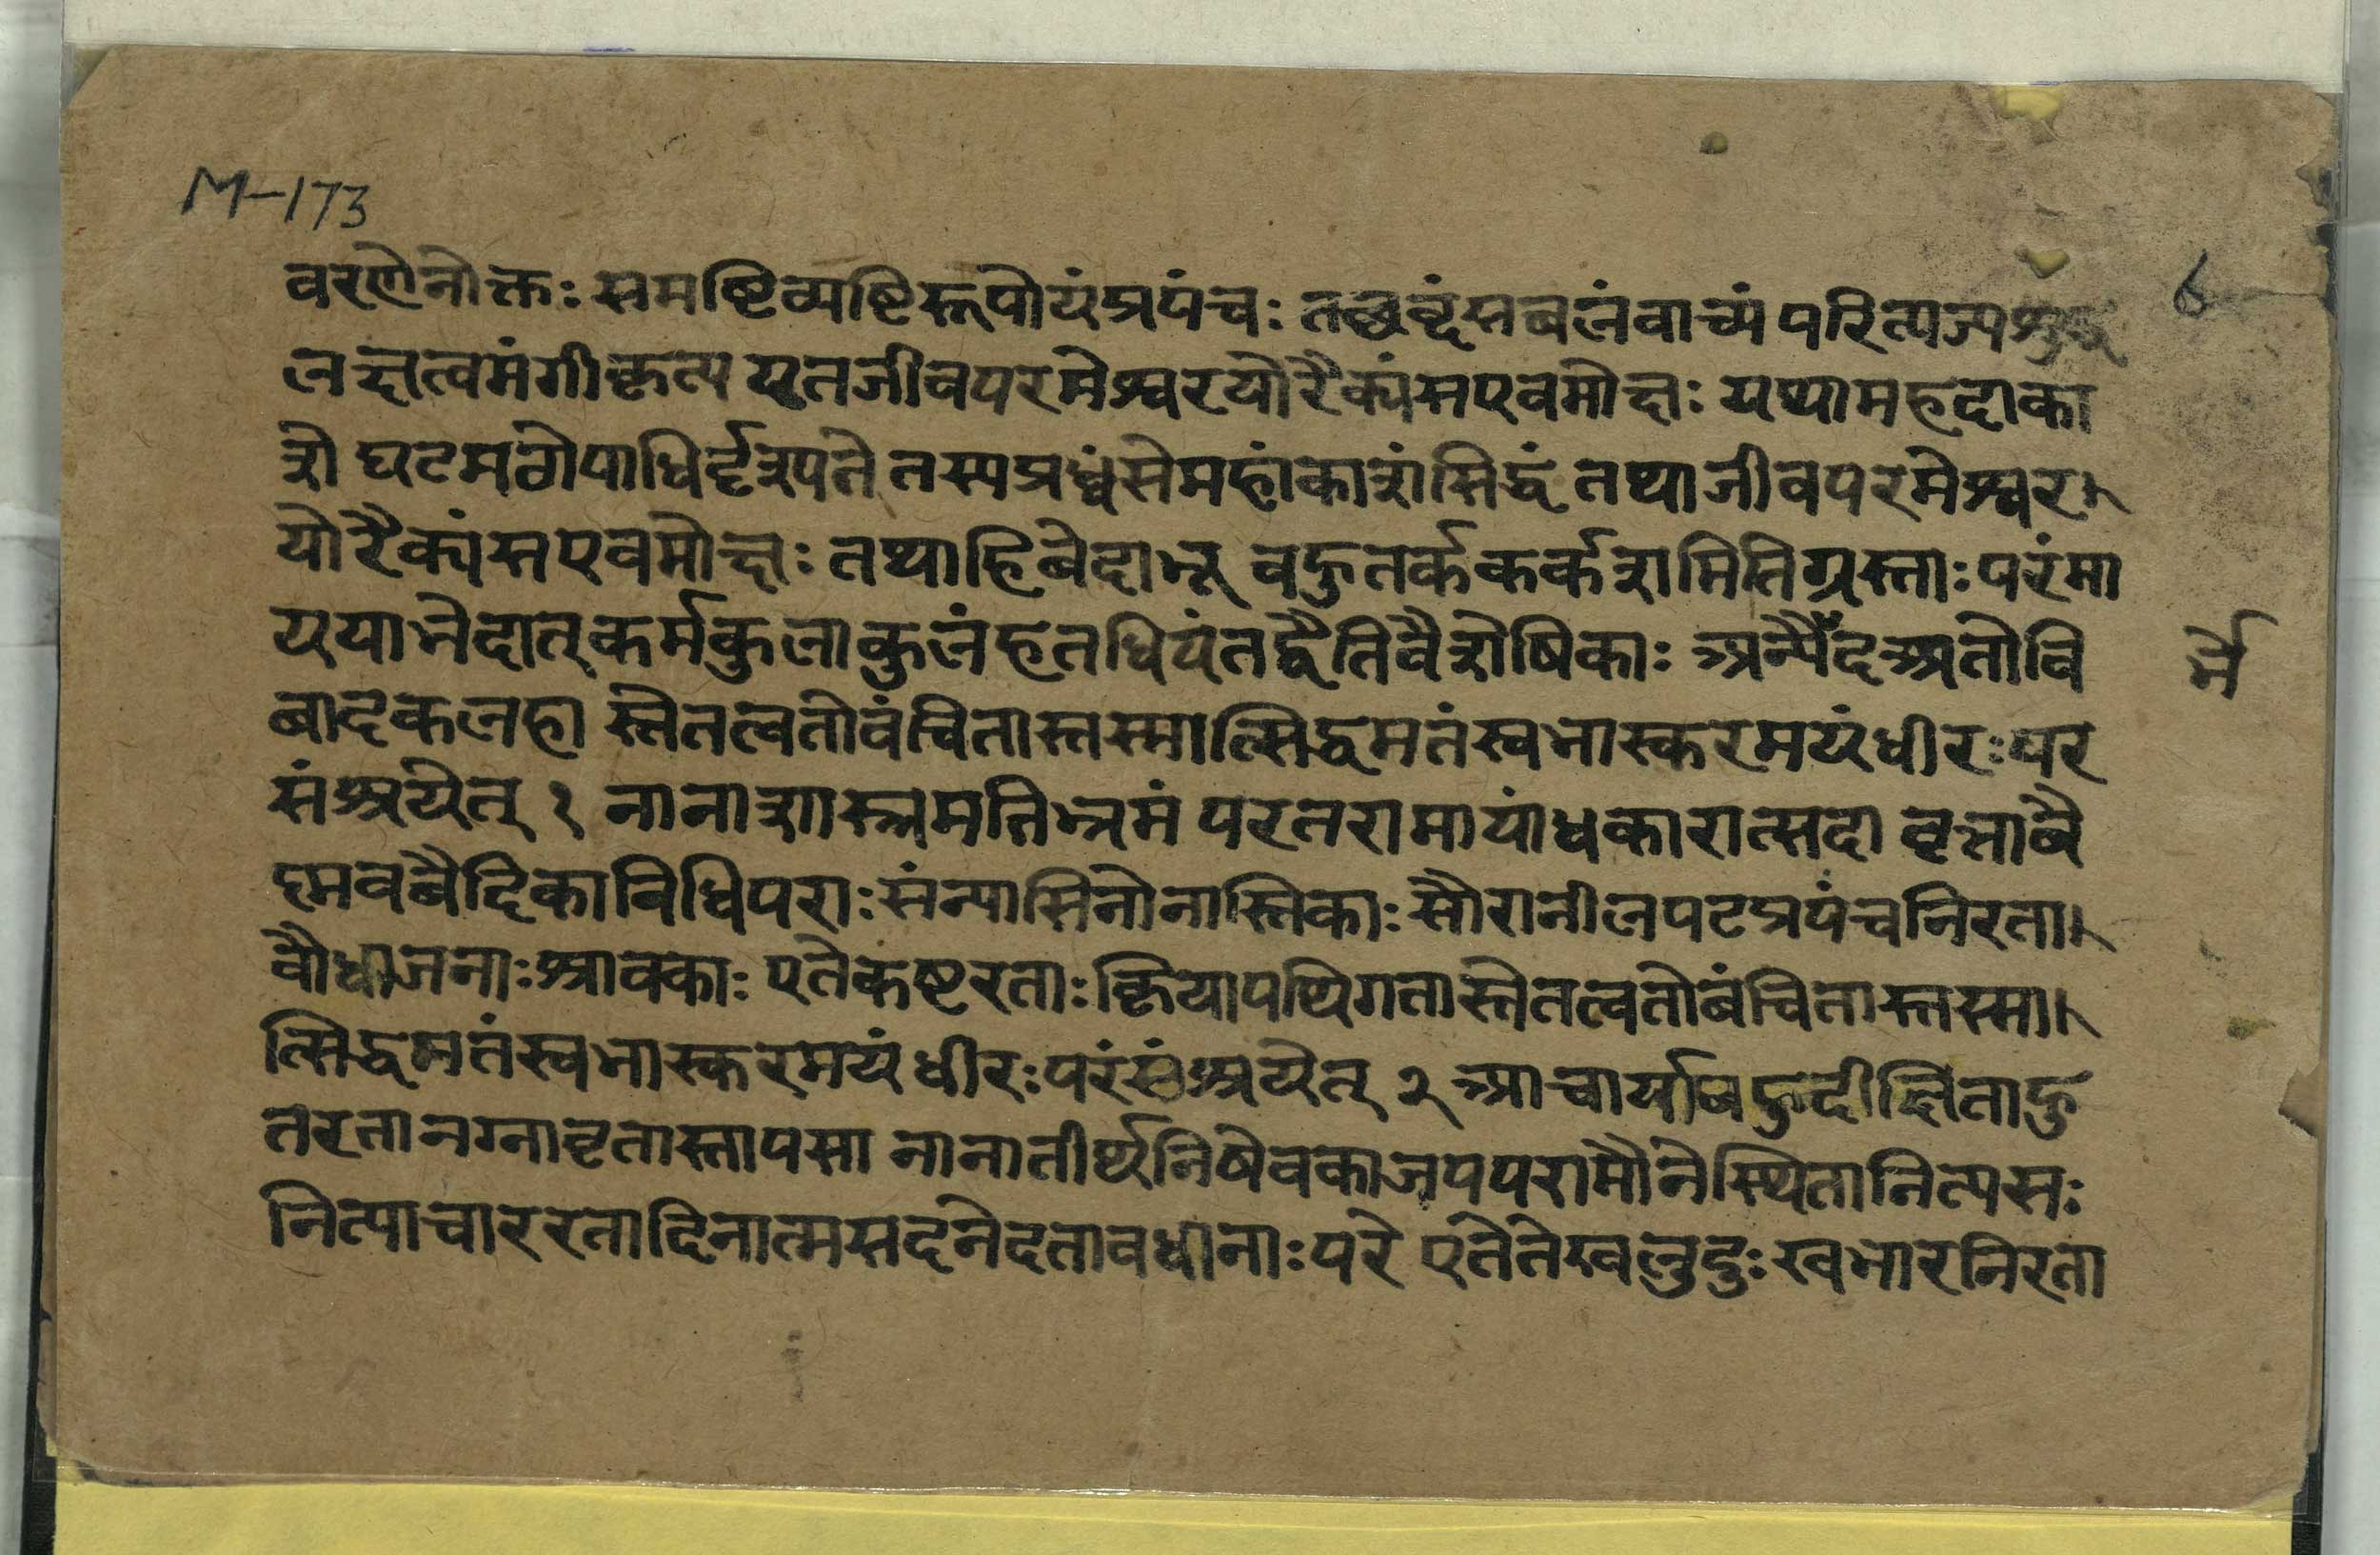 M-173
वरणेनोक्तः समष्टिव्यष्टिरूपोयंप्रपंचः तछब्दंसबलंवाच्यं परित्यज्यशुद्ध
६
लक्षत्वमंगीकृत्य युतजीवपरमेश्वरयोरैक्यंसएवमोक्षः यथामहदाका
शे घटमठोपाधिर्दृश्यते तस्यप्रध्वंसेमहांकाशंसिद्धं तथाजीवपरमेश्वर
योरैक्यंसएवमोक्षः तथाहिबेदाभ्र् वहुतर्ककर्कशमितिग्रस्ताः परंमा
ययाभेदात् कर्मकुलाकुलंहतधियंतद्वैतिवैशेषिकाः अन्यैँदअतोवि
र्मै
बादकलहा स्तेतत्वतोवंचितास्तस्मात्सिद्धमतंस्वभास्करमयंधीरः पर
संश्रयेत् १ नानाशास्त्रमतिभ्रमं परतरामायांधकारात्सदा वृत्ताबै
ह्मवबैदिकाविधिपराः संन्यासिनोनास्तिकाः सौरानीलपटप्रपंचनिरता
वौधाजनाः श्रावकाः एतेकष्टरताः क्रियापथिगतास्तेतत्वतोबंचितास्तस्मा
त्सिद्धमतंस्वभास्करमयं धीरः परंसंश्रयेत् २ आचार्याबहुदीक्षिताहु
तरतानग्नावृतास्तापसा नानातीर्थनिषेवकाजपपरामौनेस्थितानित्यसः
नित्याचाररतादिनात्मसदनेदतावधानाः परे एतेतेखलुदुःखभारनिरता